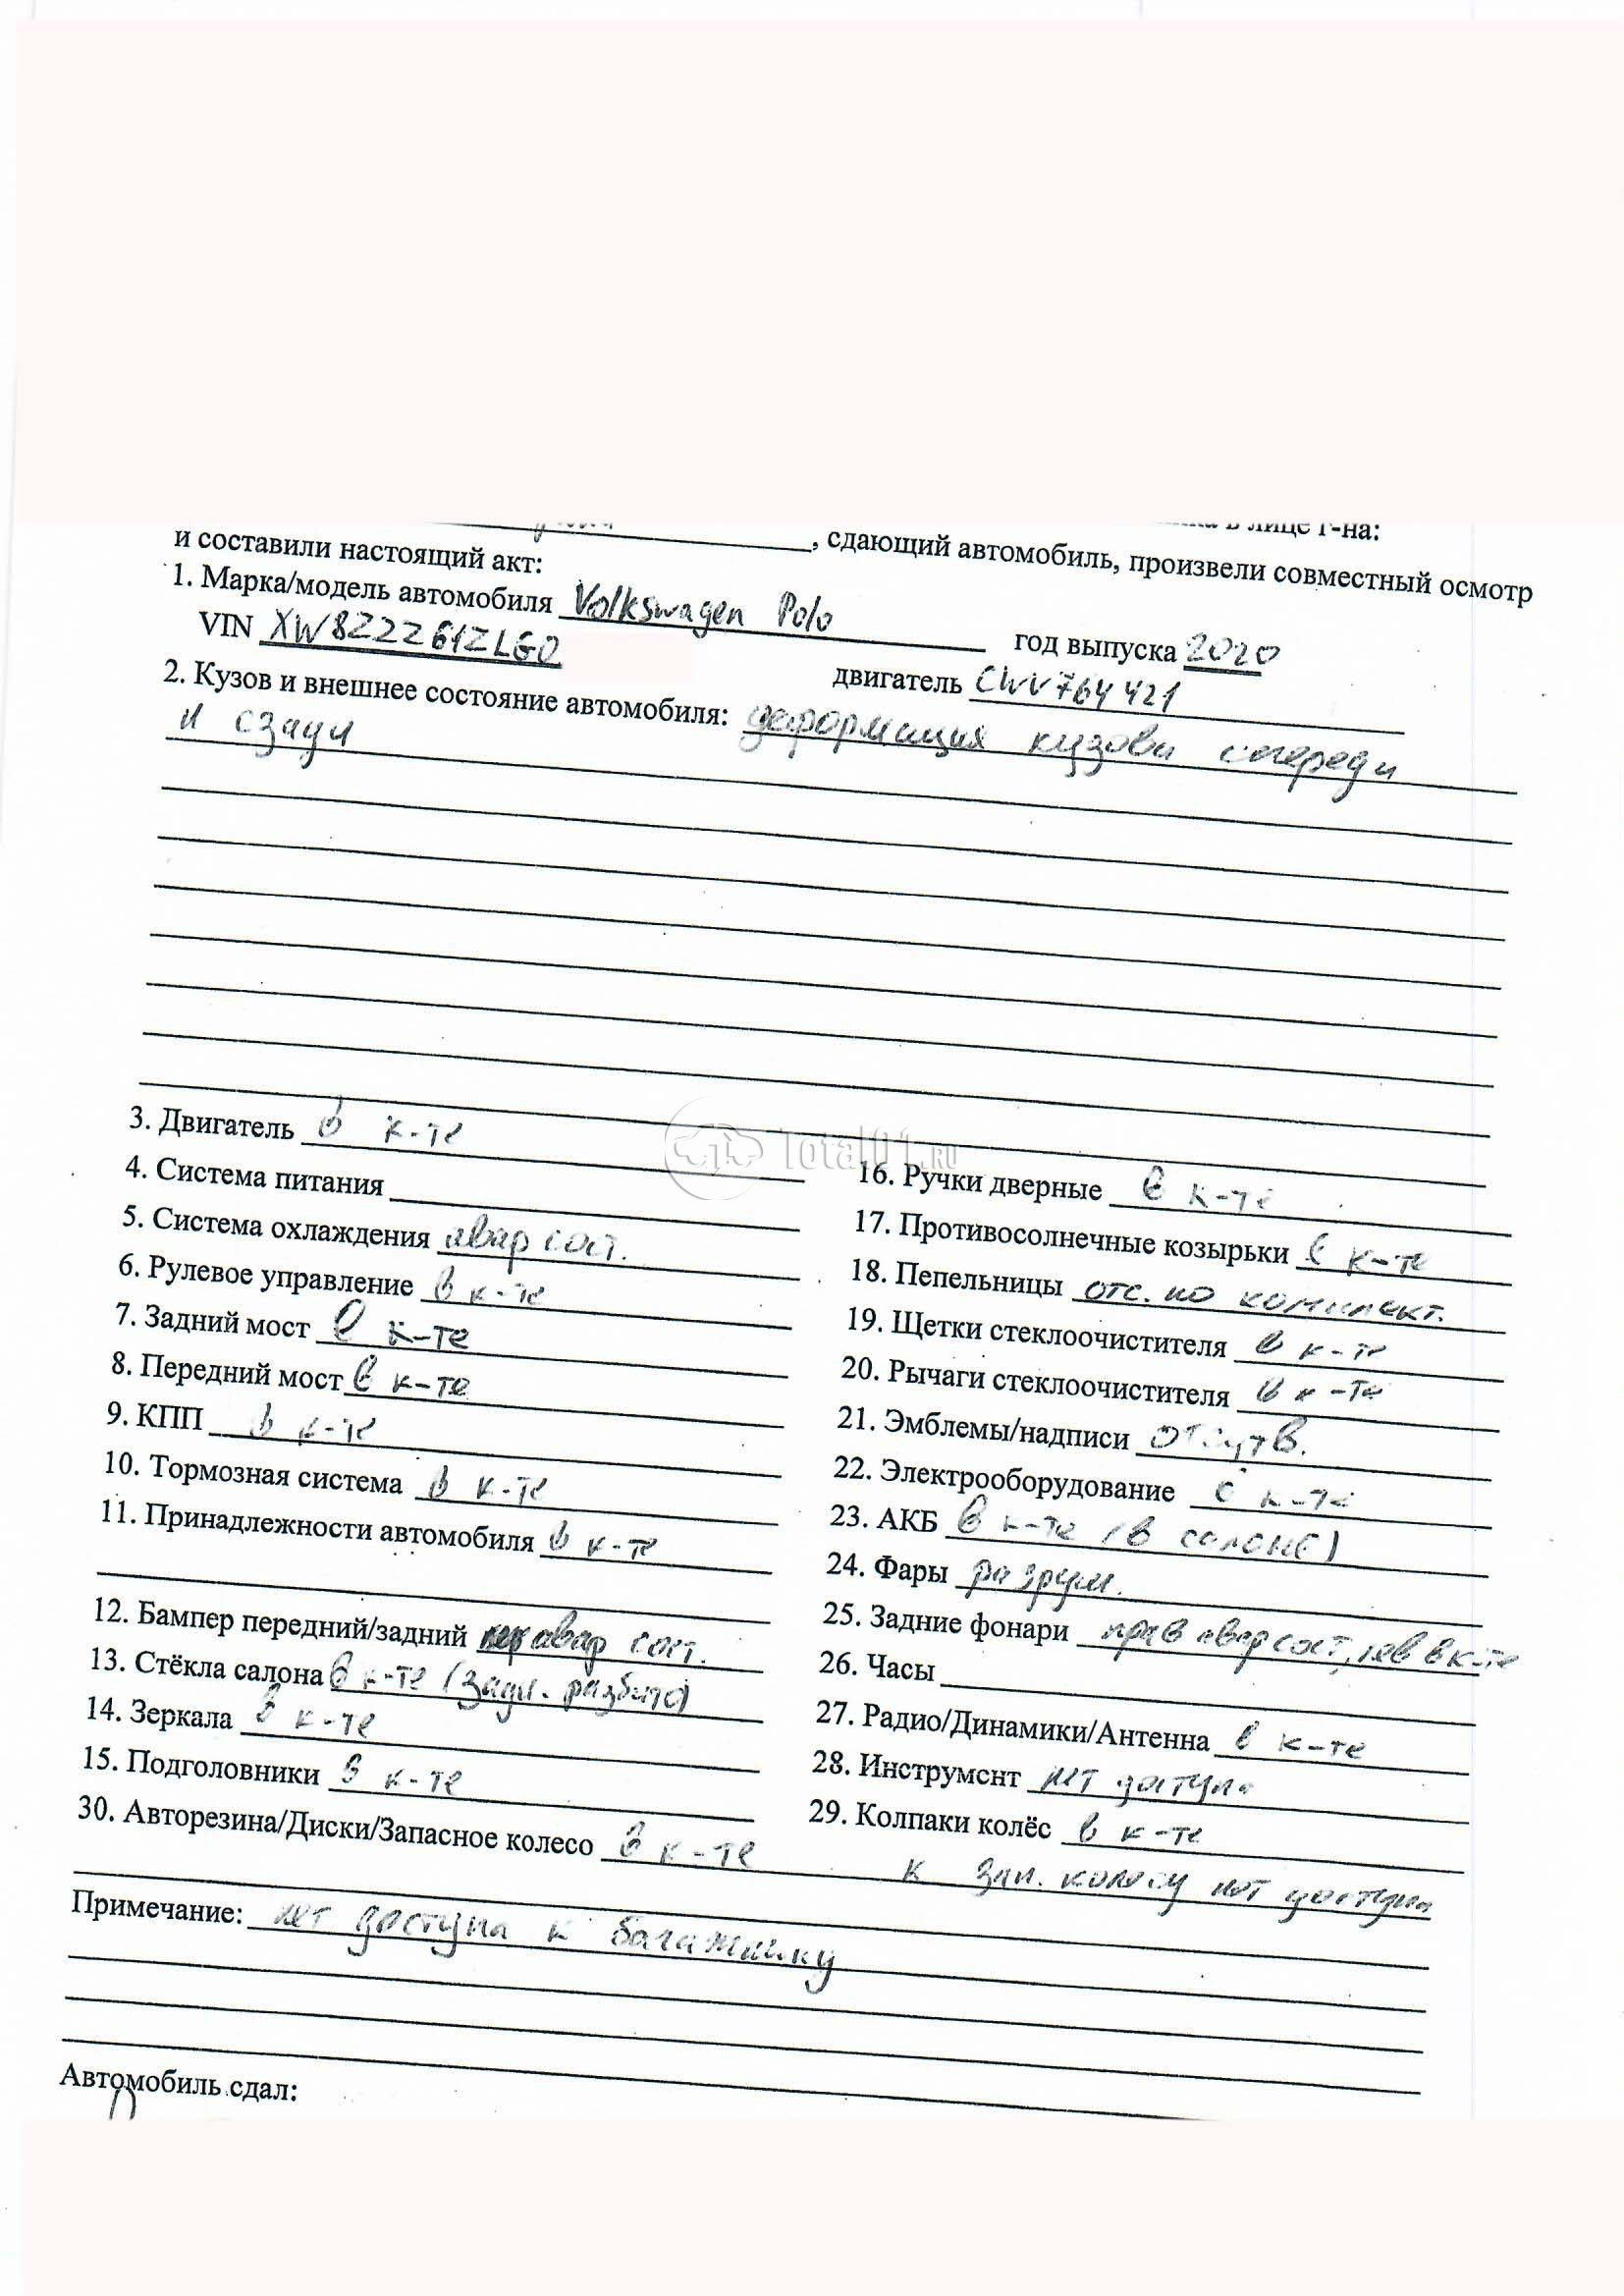 в лице г-на:
, сдающий автомобиль, произвели совместный осмотр
и составили настоящий акт:
1. Марка/модель автомобиля Volkswagen Polo год выпуска 2020
VIN XW8ZZZ61ZLG0 двигатель CWV764421
2. Кузов и внешнее состояние автомобиля: деформация кузова спереди
и сзади
3. Двигатель в к-те
4. Система питания
5. Система охлаждения авар сост.
6. Рулевое управление в к-те
7. Задний мост в к-те
8. Передний мост в к-те
9. КПП в к-те
10. Тормозная система в к-те
11. Принадлежности автомобиля в к-те
12. Бампер передний/задний авар сост.
13. Стёкла салона в к-те (задн. разбито)
14. Зеркала в к-те
15. Подголовники в к-те
Total01.RU
16. Ручки дверные в к-те
17. Противосолнечные козырьки в к-те
18. Пепельницы отс. по комплект.
19. Щетки стеклоочистителя в к-те
20. Рычаги стеклоочистителя в к-те
21. Эмблемы/надписи отсутв.
22. Электрооборудование в к-те
23. АКБ в к-те (в салоне)
24. Фары разруш.
25. Задние фонари прав авар сост, лев в к-те
26. Часы
27. Радио/Динамики/Антенна в к-те
28. Инструмент нет доступа
29. Колпаки колёс в к-те
30. Авторезина/Диски/Запасное колесо в к-те к зап. колесу нет доступа
Примечание: нет доступа к багажнику
Автомобиль сдал: